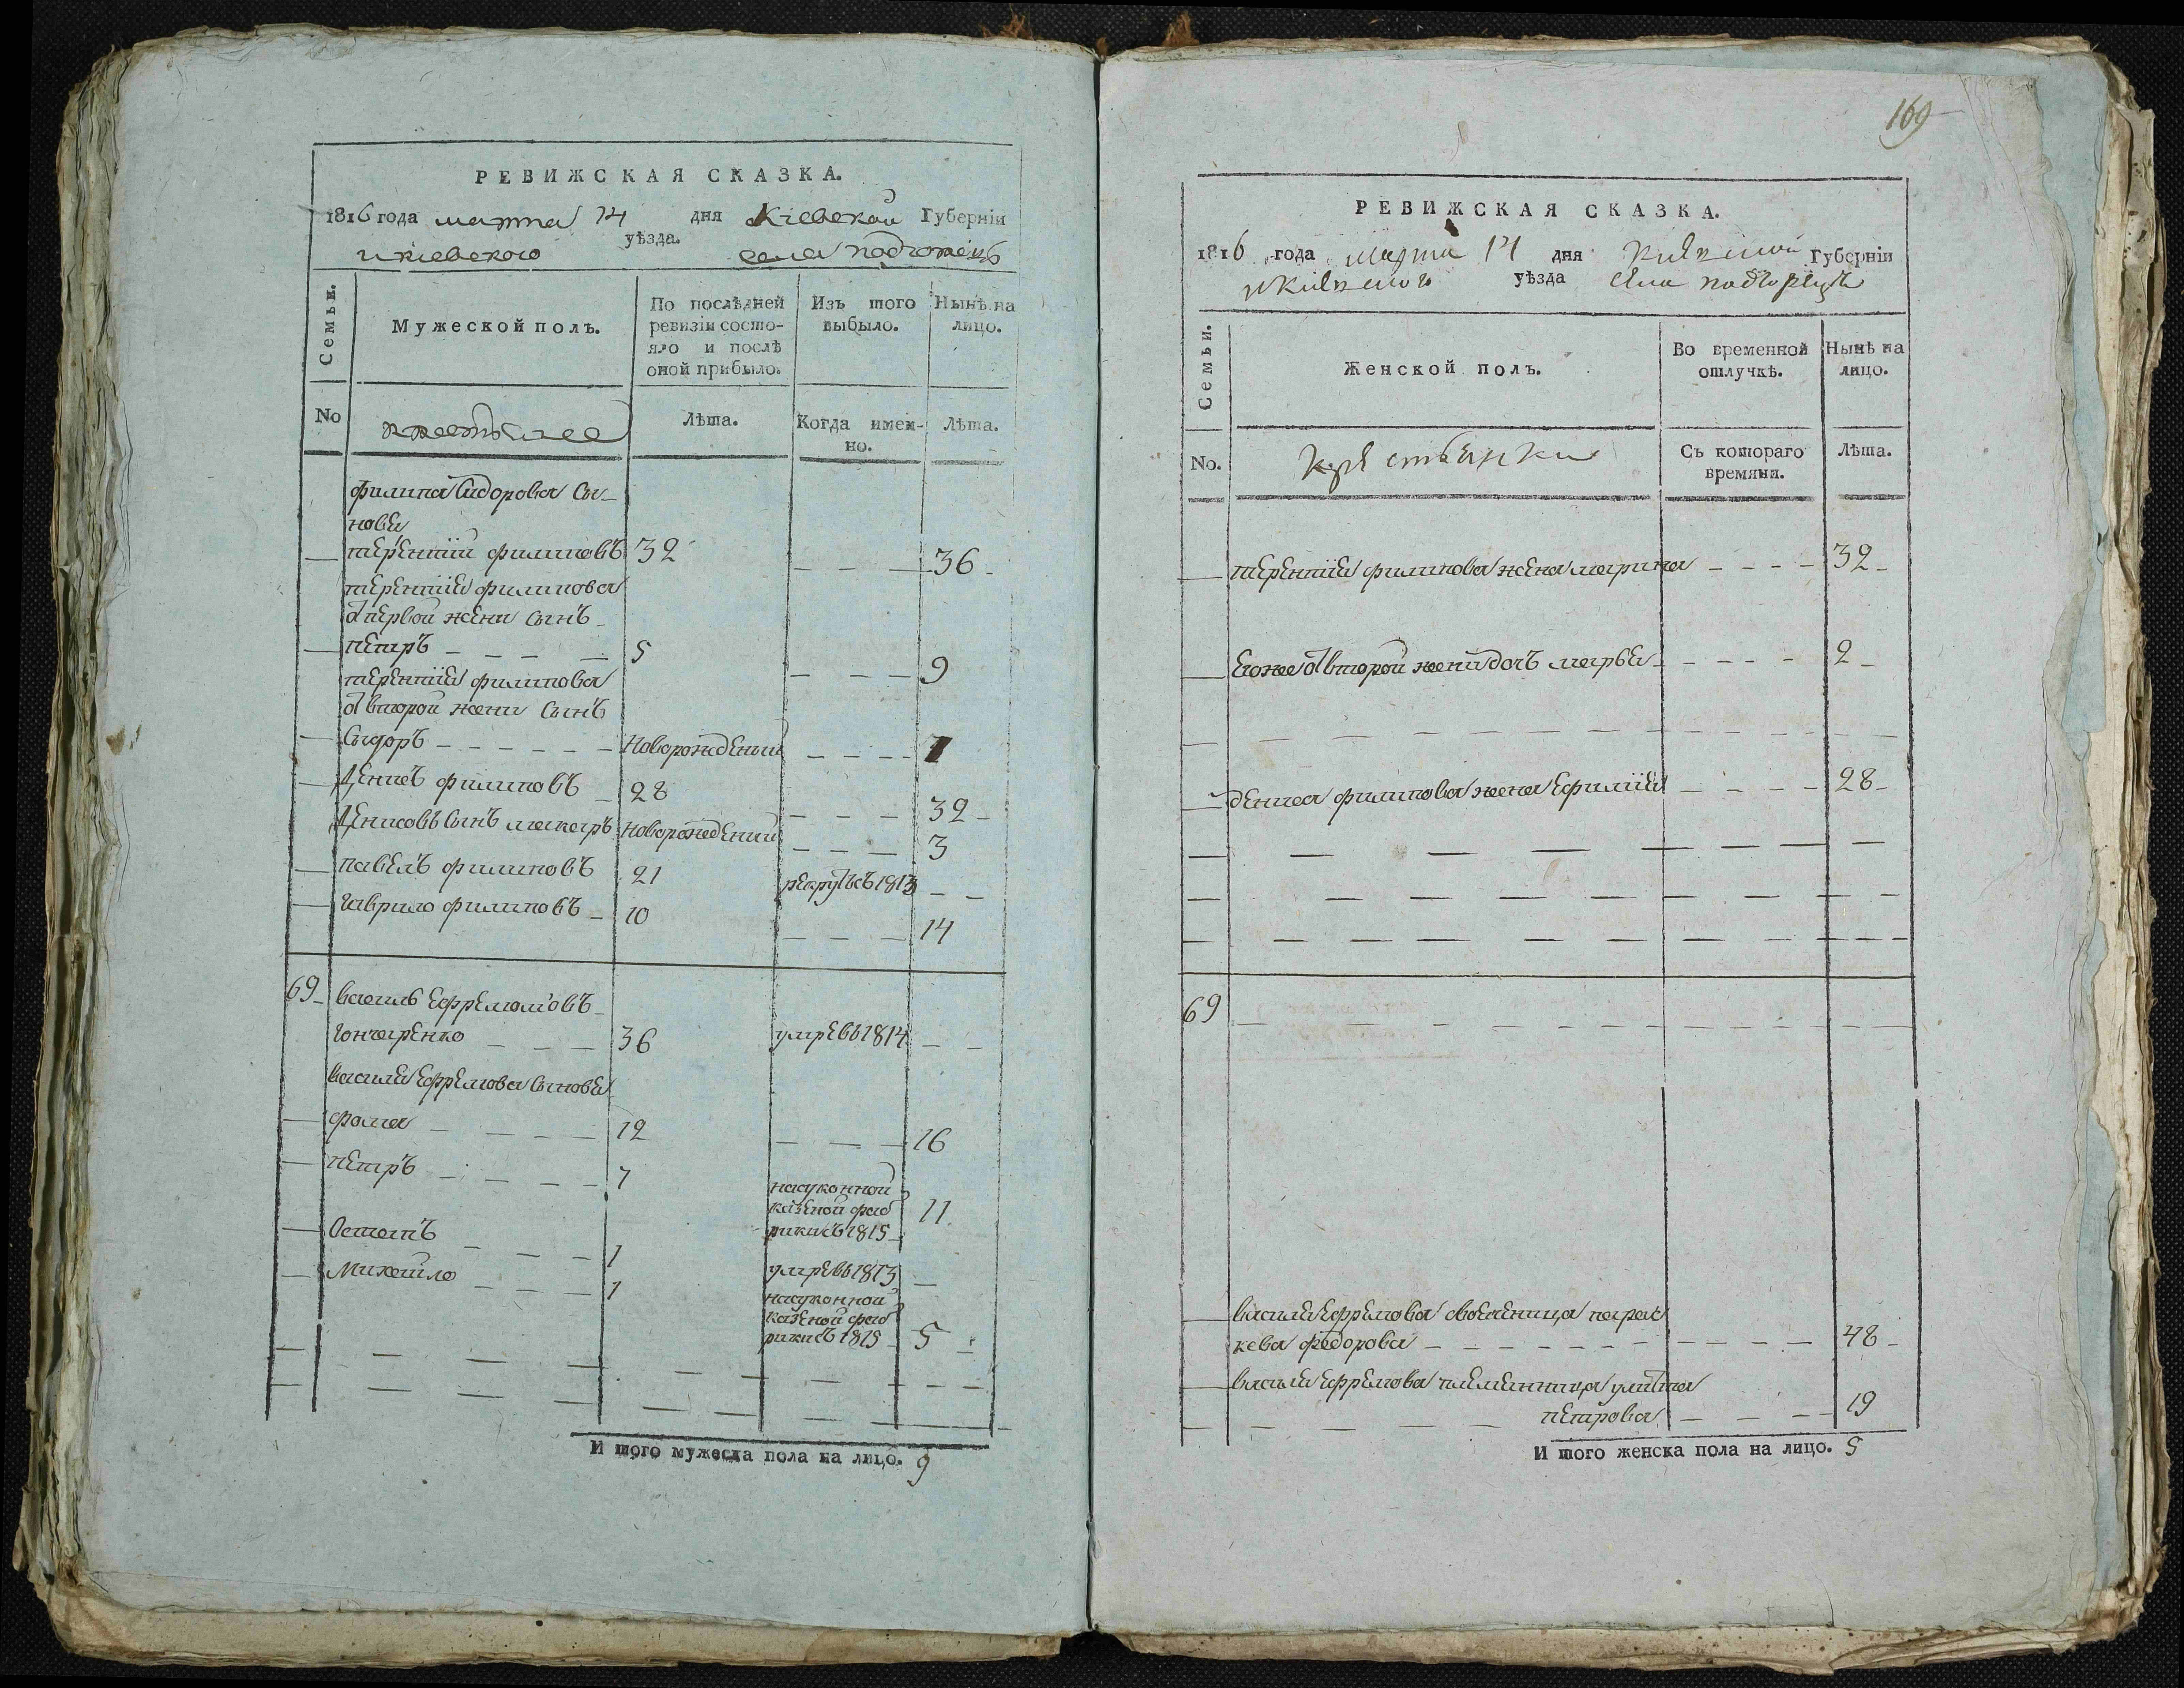 РЕВИЖСКАЯ СКАЗКА.
1816 года марта 14 дня Кіевской Губерніи
и кіевского уѣзда. села подгорецъ
Семьи.
Мужеской полъ.
По послѣдней
ревизіи состо-
яло и послѣ
оной прибыло.
Изъ того
выбыло.
Нынѣ на
лицо.
No
крестьяне
Лѣта.
Когда имен-
но.
Лѣта.
филипа Сидорова сы-
новя
терентий филиповъ 32 — — — 36
терентия филипова
от первой жени сынъ
петръ — — — — 5 — — — 9
терентия филипова
от второй жени сынъ
Сыдоръ — — — новорожденый — — — 1
Денисъ филиповъ — 28 — — — 32
Денисовъ сынъ макаръ новорожденый — — — 3
павелъ филиповъ 21 рекрутъ съ 1813 — —
гаврило филиповъ — 10 — — — 14
69 василь Ефремовъ
гончаренко — — — 36 умре въ 1814 — —
василя Ефремова сыновя
фома — — — — 12 — — — 16
петръ — — — — 7 на суконной
казеной фаб
рики съ 1815 11
Остапъ — — — 1 умре въ 1813 —
Михайло — — — 1 на суконной
казеной фаб
рики съ 1815 5
И того мужеска пола на лицо. 9
169
РЕВИЖСКАЯ СКАЗКА.
1816 года марта 14 дня Киевской Губерніи
и Киевского уѣзда села подгорецъ
Семьи.
Женской полъ.
Во временной
отлучкѣ.
Нынѣ на
лицо.
No.
крестьянки
Съ котораго
времяни.
Лѣта.
терентия филипова жена марина — — — 32
Егоже от второй жени дочъ маря — — — 2
дениса филипова жена Ефимия — — — 28
69
василя Ефремова своячница парас
кева федорова — — — 48
василя Ефремова племенница улита
петрова — — — 19
И того женска пола на лицо. 5